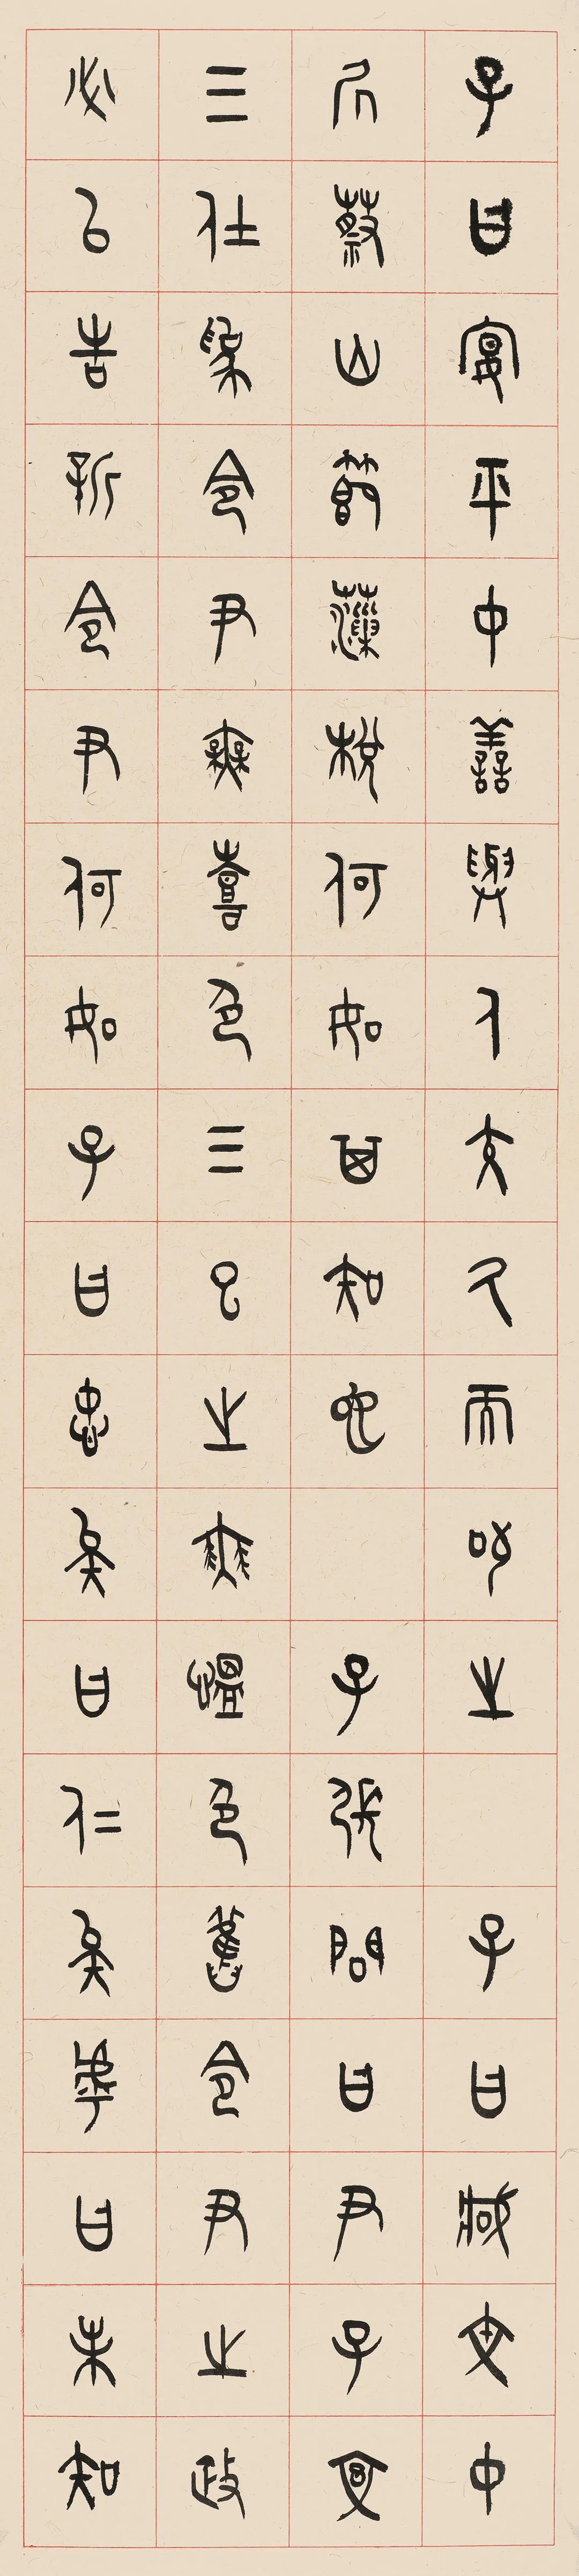 子曰晏平中善與人交久而敬之 子曰臧文中
居蔡山節藻梲何如其知也 子張問曰尹子文
三仕為令尹無喜色三已之無慍色舊令尹之政
必以告新令尹何如子曰忠矣曰仁矣乎曰未知